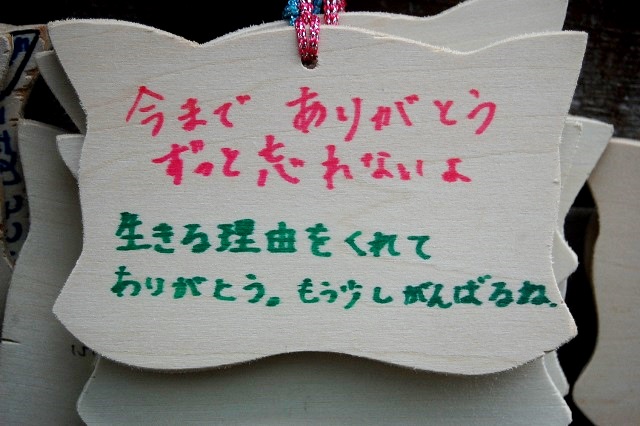 今まで ありがとう
ずっと忘れないよ
生きる理由をくれて
ありがとう。もう少しがんばるね.